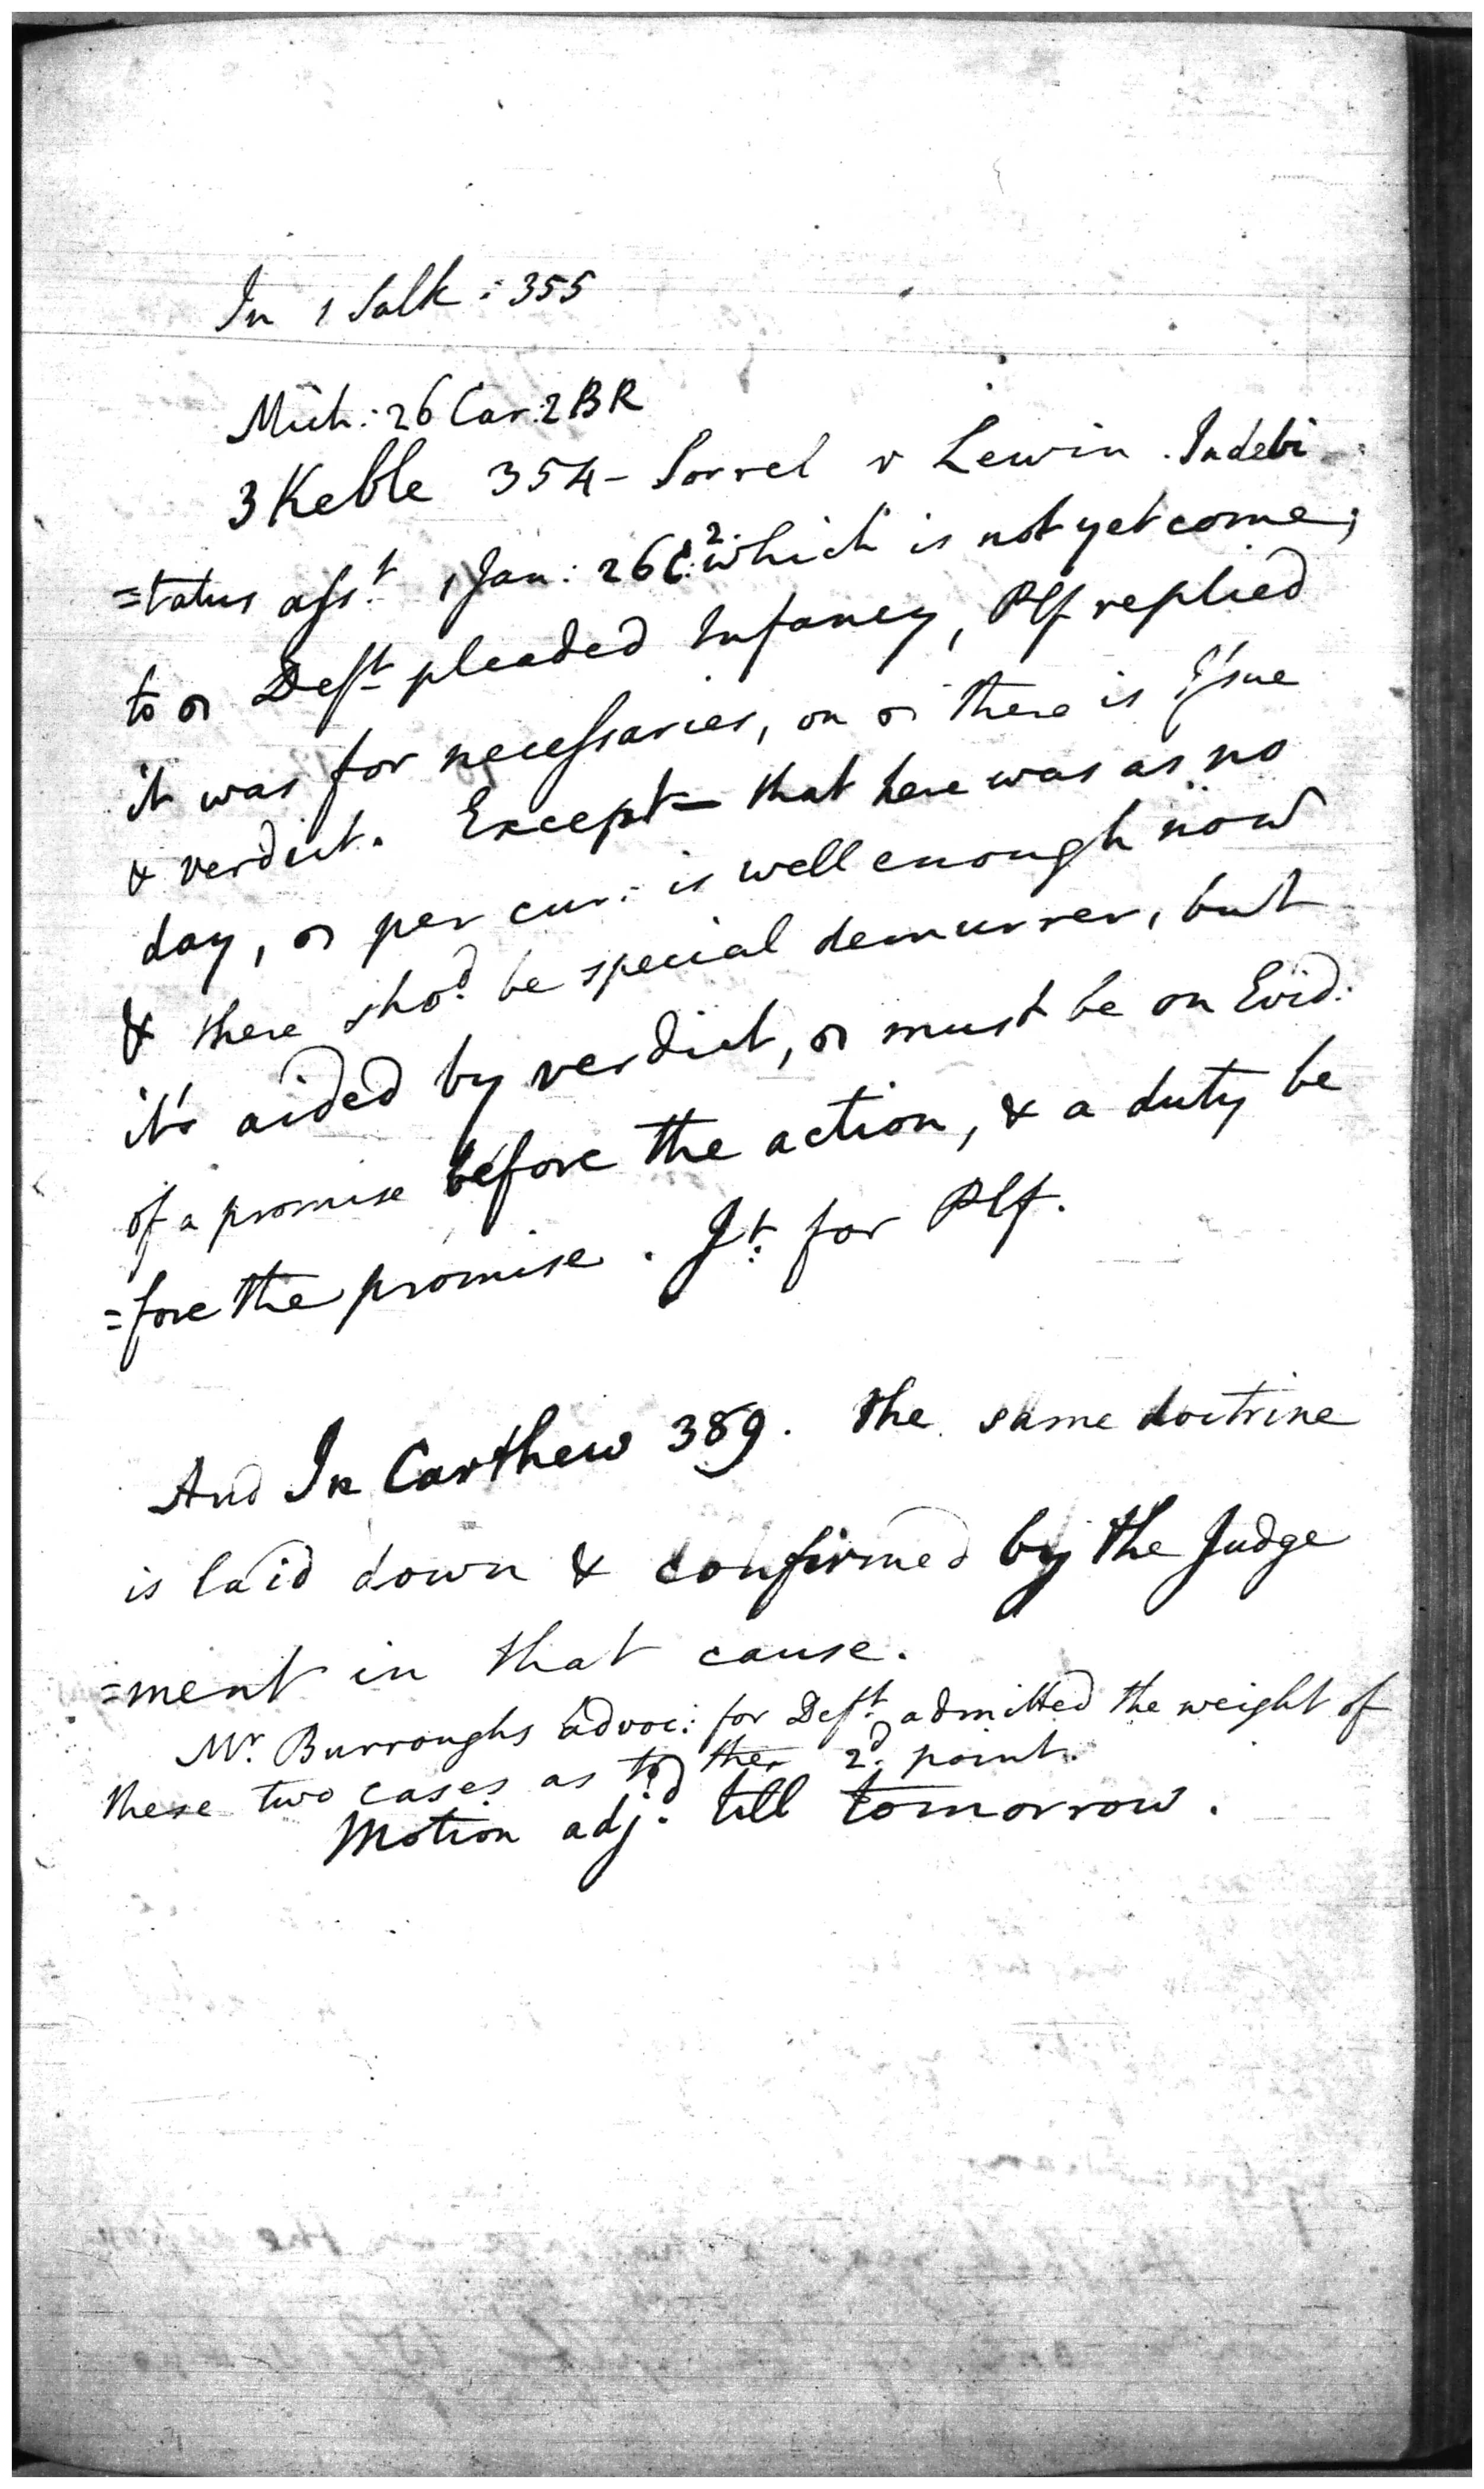 In 1 Salk: 355
Mich: 26 Car: 2 BR
3 Keble 354 - Sorrel v Lewin. Indebi
=tatus asst. 1 Jan: 26 C: 2. which is not yet come;
to Deft pleaded Infancy, Plf replied
it was for necessaries, on there is Issue
& verdict. Except - that here was as no
day, per cur: is well enough now
& there shod. be special demurrer, but
it's aided by verdict, must be on Evid:
of a promise before the action, & a duty be
=fore the promise. Jt: for Plf.
And In Carthew 389. the same doctrine
is laid down & confirmed by the Judge
=ment in that cause.
Mr. Burroughs advoc: for Deft. admitted the weight of
these two cases as to the 2d. point.
Motion adjd. till tomorrow.